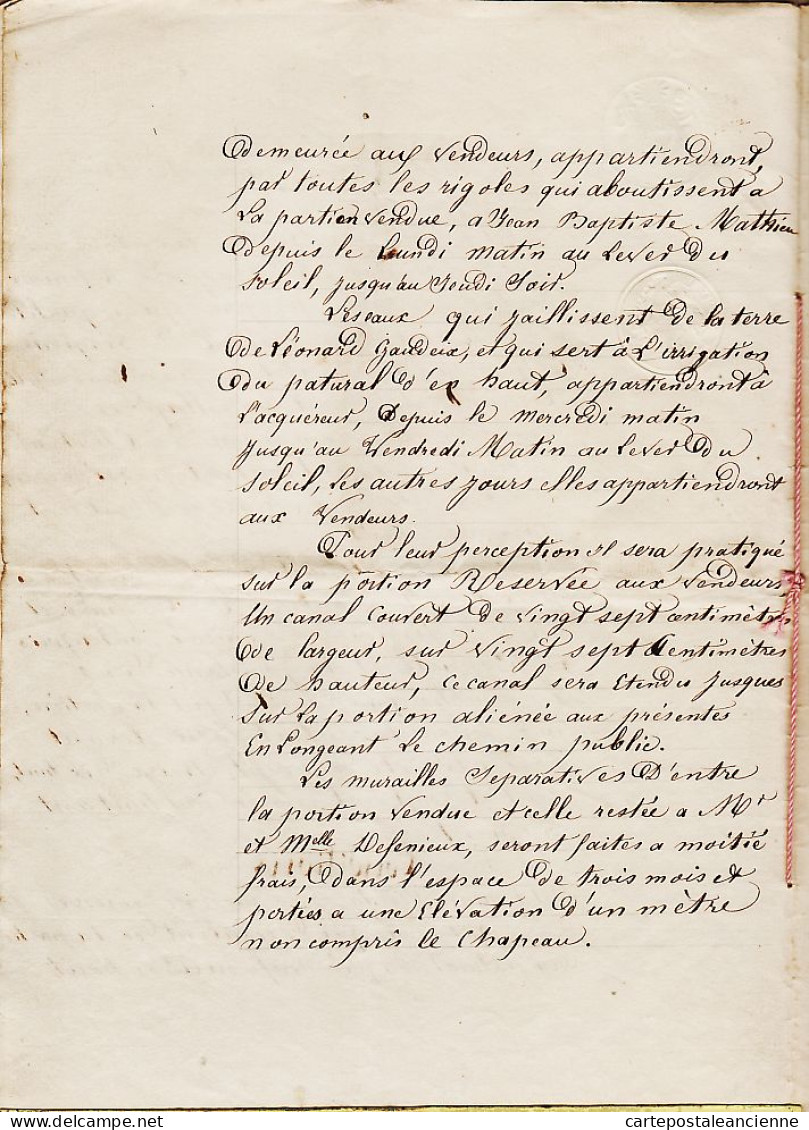 Demeurée aux Vendeurs, appartiendront,
par toutes les rigoles qui aboutissent a
La partien vendue, a Jean Baptiste Mathieu
Depuis le Lundi matin au Lever Du
Soleil, jusqu'au Jeudi Soir.
Les eaux qui jaillissent De la terre
De Léonard Gaudeix, et qui sert à L'irrigation
Du patural D'en haut, appartiendront à
L'acquéreur, Depuis le Mercredi matin
Jusqu'au Vendredi Matin au Lever Du
Soleil, Les autres jours elles appartiendront
aux Vendeurs.
Pour leur perception il sera pratiqué
sur la portion Reservée aux vendeurs
Un canal Couvert De vingt sept centimètres
De largeur, sur vingt sept Centimètres
De hauteur, Ce canal sera Etendu jusques
sur La portion aliénée aux présentes
En Longeant Le chemin public.
Les murailles Separatives D'entre
la portion Vendue et celle restée a Mr
et Melle Desenieux, seront faites a moitié
frais, Dans l'espace De trois mois et
portées a une Elévation D'un mètre
non compris le Chapeau.
cartepostaleancienne